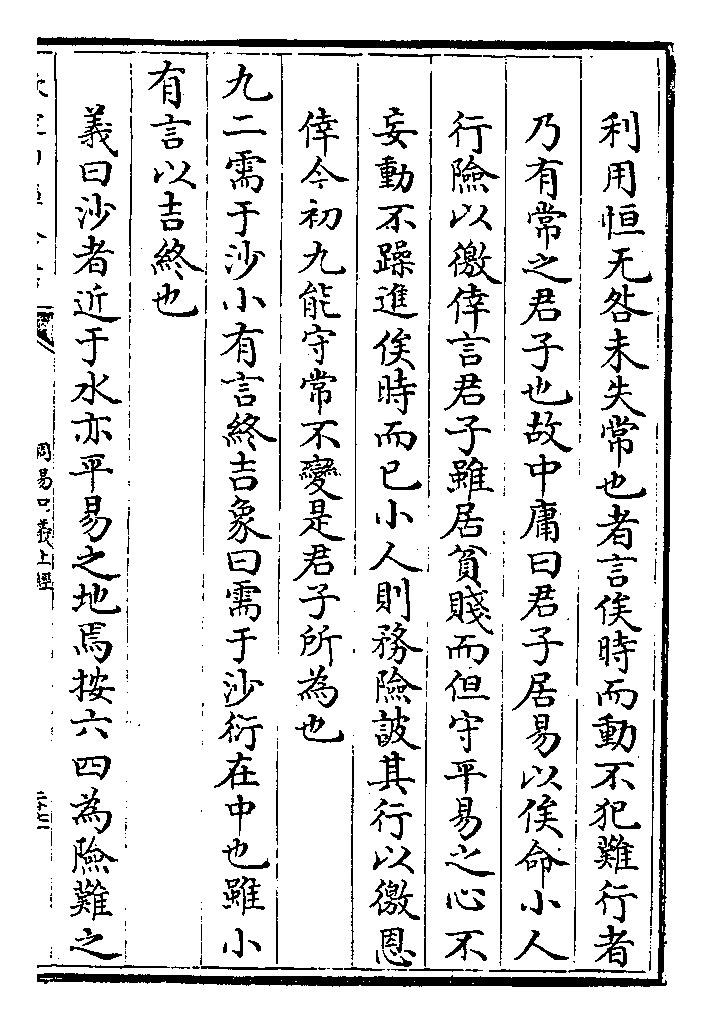 利用恒无咎未失常也者言俟時而動不犯難行者
乃有常之君子也故中庸曰君子居易以俟命小人
行險以徼倖言君子雖居貧賤而但守平易之心不
妄動不躁進俟時而已小人則務險詖其行以徼恩
倖今初九能守常不變是君子所為也
九二需于沙小有言終吉象曰需于沙衍在中也雖小
有言以吉終也
義曰沙者近于水亦平易之地焉按六四為險難之
周易口義上經